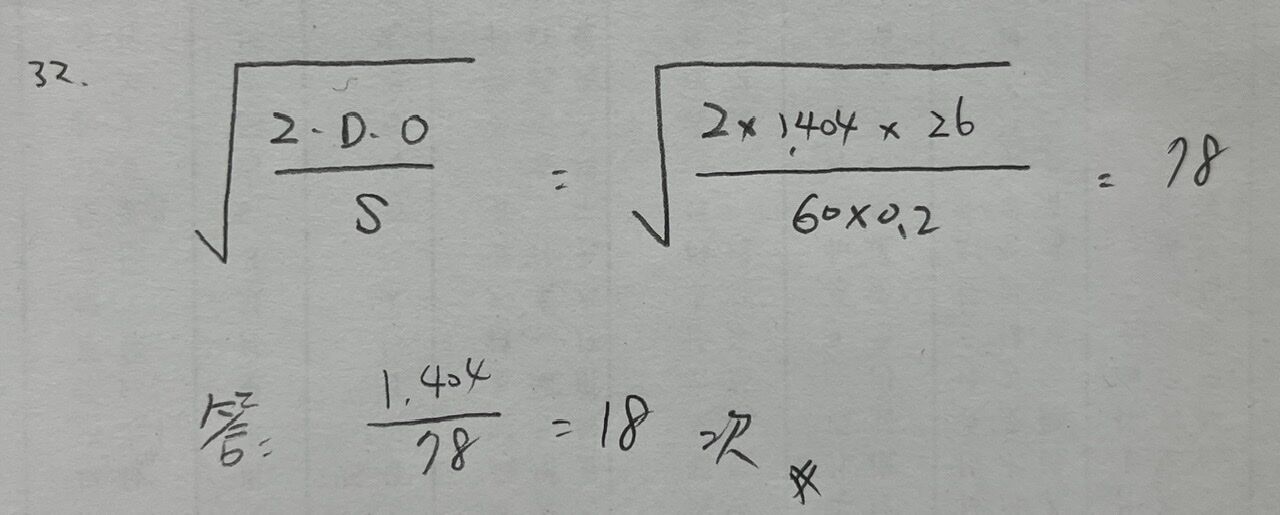 32. √(2·D·O / S) = √(2 × 1,404 × 26 / 60×0.2) = 78
答: 1,404 / 78 = 18 次